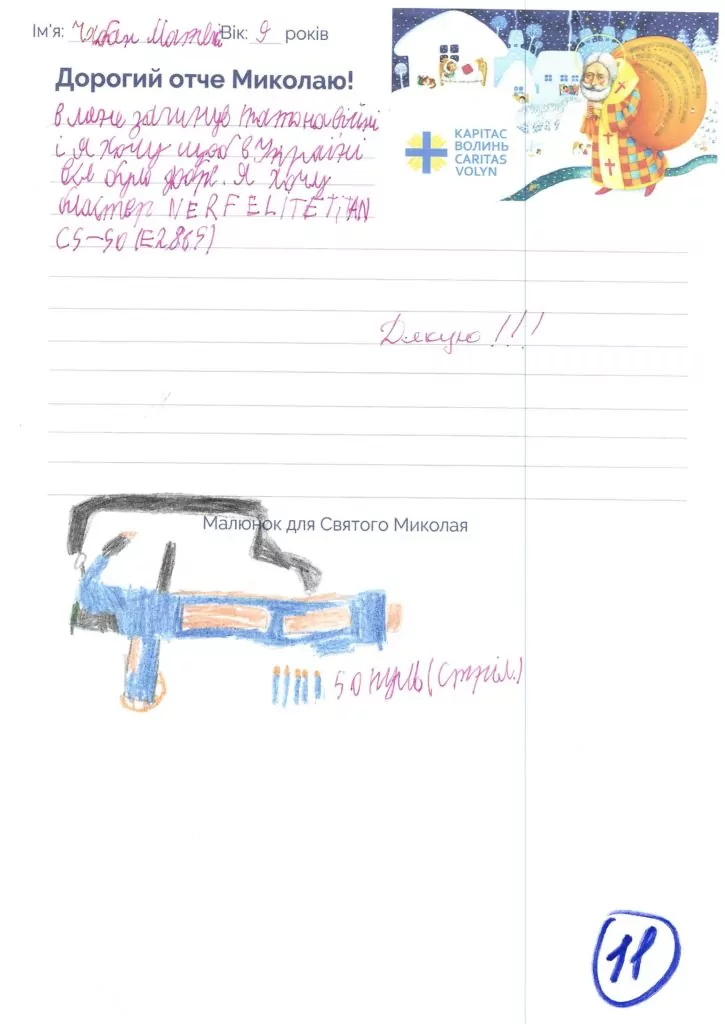 Ім'я: Чабан Матвій Вік: 9 років
КАРІТАС
ВОЛИНЬ
CARITAS
VOLYN
Дорогий отче Миколаю!
в мене загинув тато на війні
і я хочу щоб в Україні
все було добре. Я хочу
бластер NERF ELITE TITAN
CS-50 (E2865)
Дякую!!!
Малюнок для Святого Миколая
50 пуль (стріл.)
11